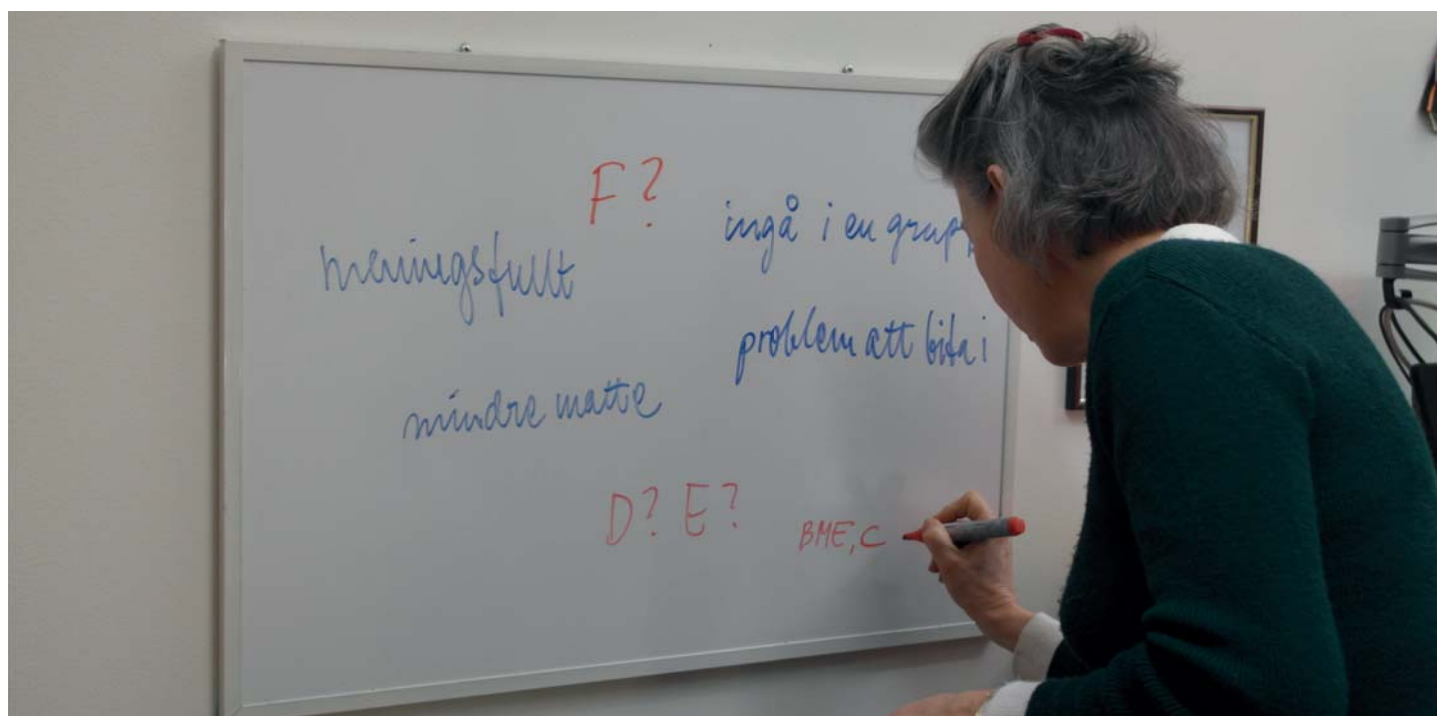 F?
meningsfullt
ingå i en grupp
problem att bita i
mindre matte
D? E?
BME, C